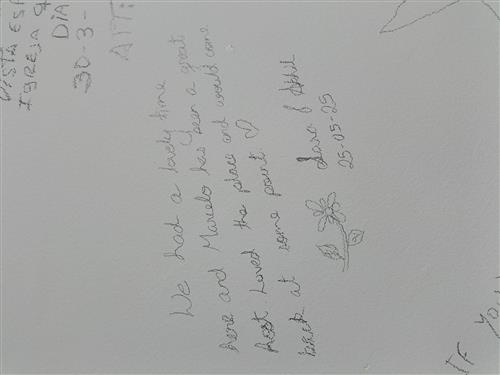 VISTA ESP
IGREJA
DIA
30-3-
ATT:
We had a lovely time
here and Marcelo has been a great
host Loved the place and would come
back at some point. ♡
Sara &
25-05-25
IF